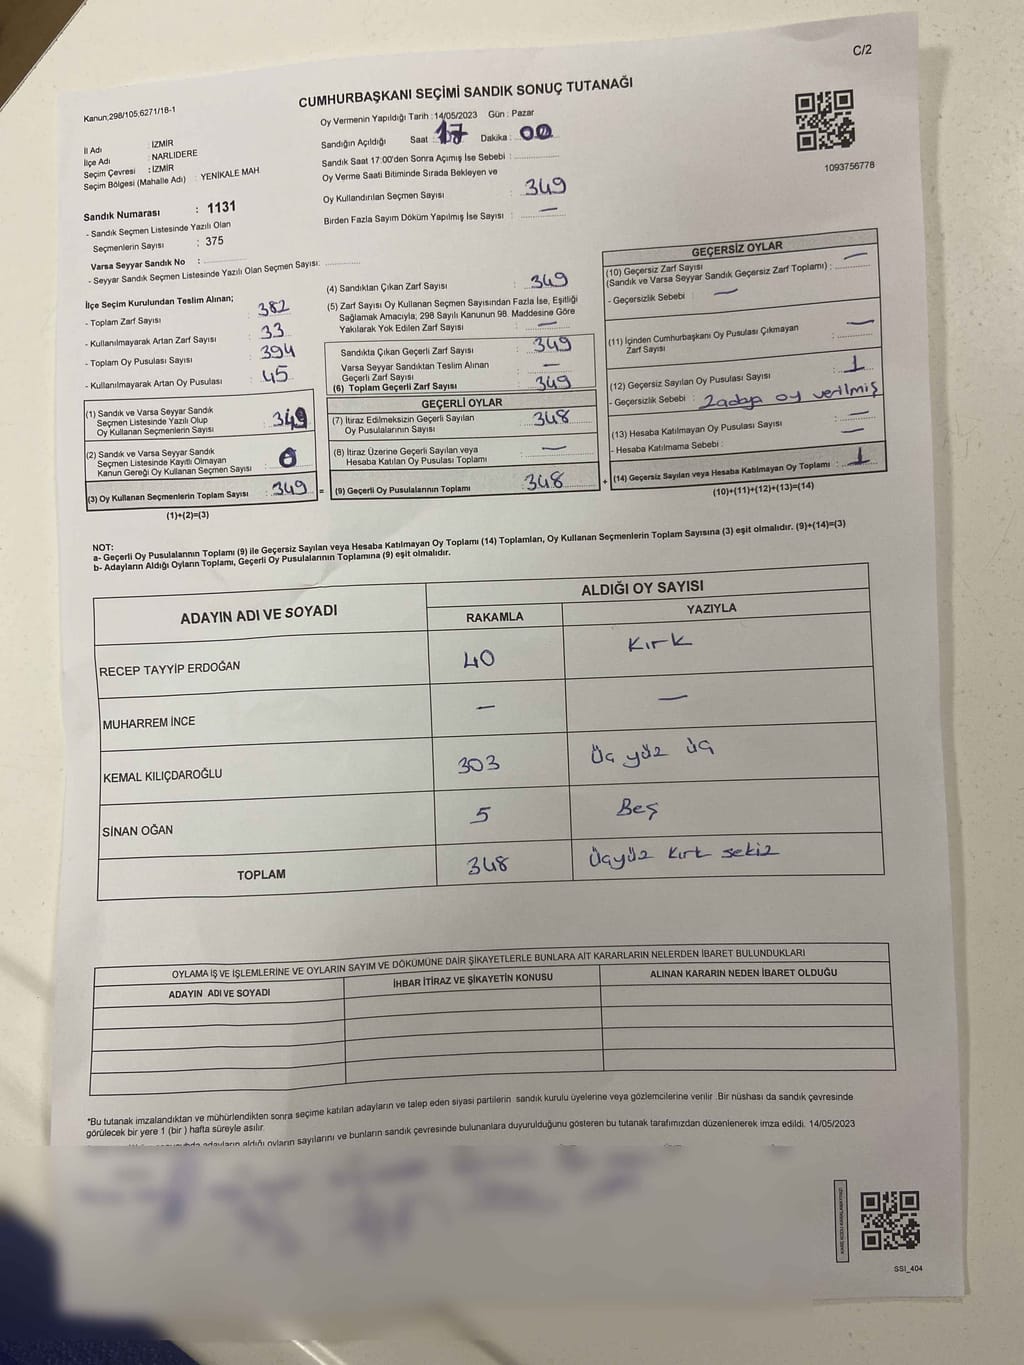 C/2
Kanun,298/105,6271/18-1
CUMHURBAŞKANI SEÇİMİ SANDIK SONUÇ TUTANAĞI
1093756778
İl Adı : İZMİR
İlçe Adı : NARLIDERE
Seçim Çevresi : İZMİR
Seçim Bölgesi (Mahalle Adı) : YENİKALE MAH
Sandık Numarası : 1131
- Sandık Seçmen Listesinde Yazılı Olan
Seçmenlerin Sayısı : 375
Varsa Seyyar Sandık No :
- Seyyar Sandık Seçmen Listesinde Yazılı Olan Seçmen Sayısı:
Oy Vermenin Yapıldığı Tarih : 14/05/2023 Gün : Pazar
Sandığın Açıldığı Saat : 17 Dakika : 00
Sandık Saat 17:00'den Sonra Açımış İse Sebebi :
Oy Verme Saati Bitiminde Sırada Bekleyen ve
Oy Kullandırılan Seçmen Sayısı : 349
Birden Fazla Sayım Döküm Yapılmış İse Sayısı : —
İlçe Seçim Kurulundan Teslim Alınan;
- Toplam Zarf Sayısı : 382
- Kullanılmayarak Artan Zarf Sayısı : 33
- Toplam Oy Pusulası Sayısı : 394
- Kullanılmayarak Artan Oy Pusulası : 45
(1) Sandık ve Varsa Seyyar Sandık
Seçmen Listesinde Yazılı Olup
Oy Kullanan Seçmenlerin Sayısı : 349
(2) Sandık ve Varsa Seyyar Sandık
Seçmen Listesinde Kayıtlı Olmayan
Kanun Gereği Oy Kullanan Seçmen Sayısı : 0
(3) Oy Kullanan Seçmenlerin Toplam Sayısı : 349 =
(1)+(2)=(3)
(4) Sandıktan Çıkan Zarf Sayısı : 349
(5) Zarf Sayısı Oy Kullanan Seçmen Sayısından Fazla İse, Eşitliği
Sağlamak Amacıyla, 298 Sayılı Kanunun 98. Maddesine Göre
Yakılarak Yok Edilen Zarf Sayısı : —
Sandıkta Çıkan Geçerli Zarf Sayısı : 349
Varsa Seyyar Sandıktan Teslim Alınan
Geçerli Zarf Sayısı : —
(6) Toplam Geçerli Zarf Sayısı : 349
GEÇERLİ OYLAR
(7) İtiraz Edilmeksizin Geçerli Sayılan
Oy Pusulalarının Sayısı : 348
(8) İtiraz Üzerine Geçerli Sayılan veya
Hesaba Katılan Oy Pusulası Toplamı : —
(9) Geçerli Oy Pusulalarının Toplamı : 348 +
GEÇERSİZ OYLAR
(10) Geçersiz Zarf Sayısı
(Sandık ve Varsa Seyyar Sandık Geçersiz Zarf Toplamı) : —
- Geçersizlik Sebebi : —
(11) İçinden Cumhurbaşkanı Oy Pusulası Çıkmayan
Zarf Sayısı : —
(12) Geçersiz Sayılan Oy Pusulası Sayısı : 1
- Geçersizlik Sebebi : 2 adaya oy verilmiş
(13) Hesaba Katılmayan Oy Pusulası Sayısı : —
- Hesaba Katılmama Sebebi : —
(14) Geçersiz Sayılan veya Hesaba Katılmayan Oy Toplamı : 1
(10)+(11)+(12)+(13)=(14)
NOT:
a- Geçerli Oy Pusulalarının Toplamı (9) ile Geçersiz Sayılan veya Hesaba Katılmayan Oy Toplamı (14) Toplamları, Oy Kullanan Seçmenlerin Toplam Sayısına (3) eşit olmalıdır. (9)+(14)=(3)
b- Adayların Aldığı Oyların Toplamı, Geçerli Oy Pusulalarının Toplamına (9) eşit olmalıdır.
ADAYIN ADI VE SOYADI
ALDIĞI OY SAYISI
RAKAMLA YAZIYLA
RECEP TAYYİP ERDOĞAN 40 Kırk
MUHARREM İNCE — —
KEMAL KILIÇDAROĞLU 303 Üç yüz üç
SİNAN OĞAN 5 Beş
TOPLAM 348 Üçyüz kırk sekiz
OYLAMA İŞ VE İŞLEMLERİNE VE OYLARIN SAYIM VE DÖKÜMÜNE DAİR ŞİKAYETLERLE BUNLARA AİT KARARLARIN NELERDEN İBARET BULUNDUKLARI
ADAYIN ADI VE SOYADI İHBAR İTİRAZ VE ŞİKAYETİN KONUSU ALINAN KARARIN NEDEN İBARET OLDUĞU
*Bu tutanak imzalandıktan ve mühürlendikten sonra seçime katılan adayların ve talep eden siyasi partilerin sandık kurulu üyelerine veya gözlemcilerine verilir .Bir nüshası da sandık çevresinde
görülecek bir yere 1 (bir ) hafta süreyle asılır.
adayların aldığı oyların sayılarını ve bunların sandık çevresinde bulunanlara duyurulduğunu gösteren bu tutanak tarafımızdan düzenlenerek imza edildi. 14/05/2023
SSI_404